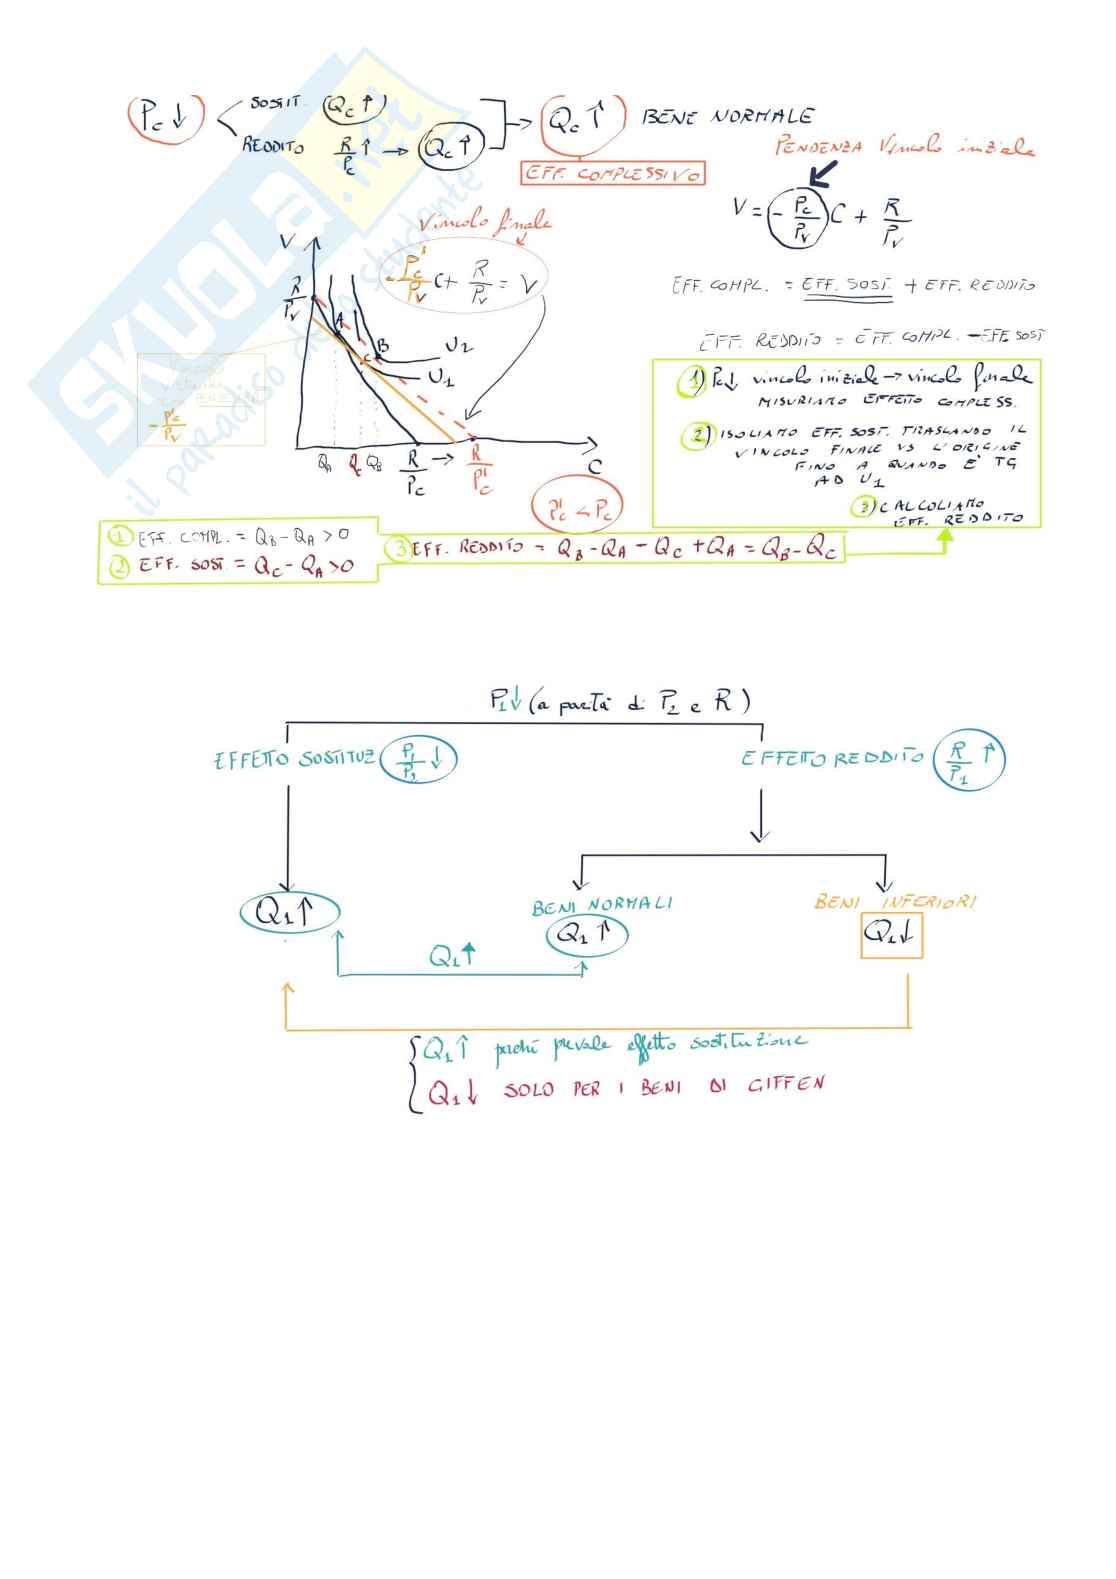 Pc↓
SOSTIT. Qc↑
REDDITO R/Pc↑ → Qc↑
Qc↑ BENE NORMALE
EFF. COMPLESSIVO
PENDENZA Vincolo iniziale
V = - Pc/Pv C + R/Pv
Vincolo finale
- P'c/Pv C + R/Pv = V
EFF. COMPL. = EFF. SOST. + EFF. REDDITO
EFF. REDDITO = EFF. COMPL. - EFF. SOST
V
R/Pv
A
B
C
U2
U1
- P'c/Pv
QA QC QB
R/Pc → R/P'c
C
P'c < Pc
1) Pc↓ vincolo iniziale → vincolo finale
MISURIAMO EFFETTO COMPLESS.
2) ISOLIAMO EFF. SOST. TRASLANDO IL
VINCOLO FINALE VS L'ORIGINE
FINO A QUANDO E' TG
AD U1
3) CALCOLIAMO
EFF. REDDITO
1 EFF. COMPL. = QB - QA > 0
2 EFF. SOST. = QC - QA > 0
3 EFF. REDDITO = QB - QA - QC + QA = QB - QC
P1↓ (a parità di P2 e R)
EFFETTO SOSTITUZ P1/P2 ↓
EFFETTO REDDITO R/P1 ↑
Q1↑
BENI NORMALI
Q1↑
BENI INFERIORI
Q1↓
Q1↑
Q1↑ perché prevale effetto sostituzione
Q1↓ SOLO PER I BENI DI GIFFEN
SKUOLA.net
il paradiso dello studente